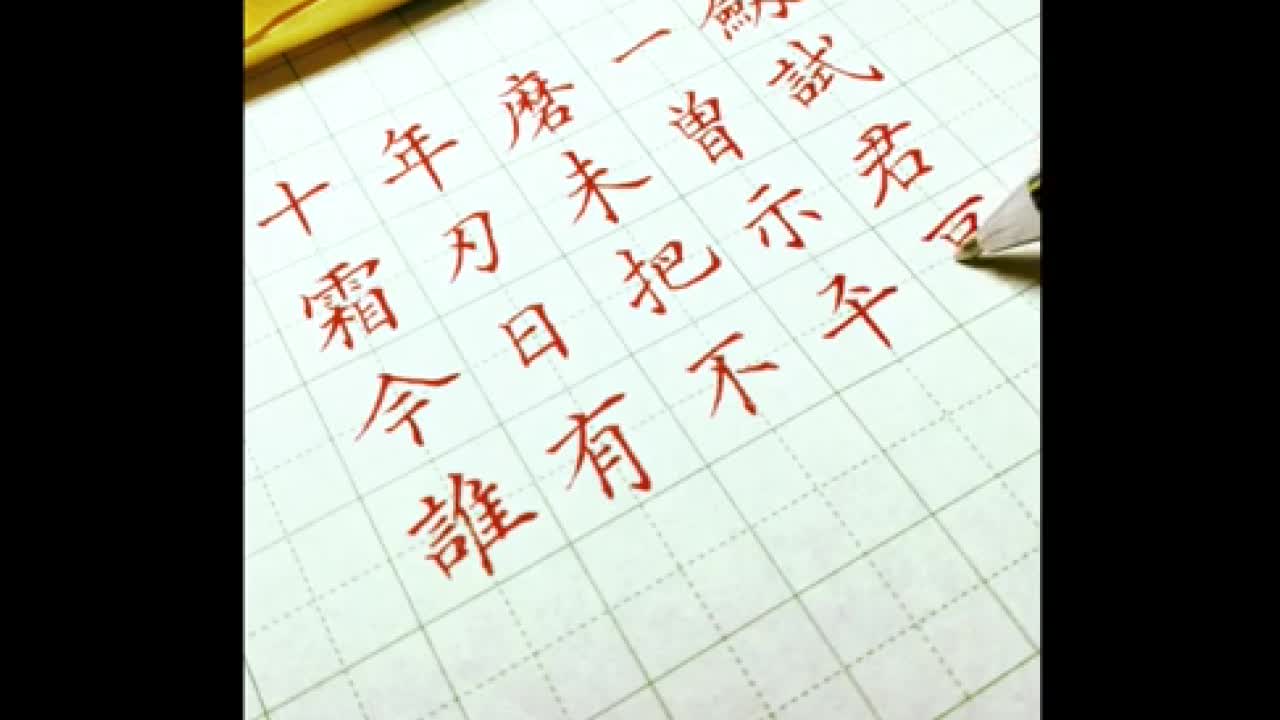 十年磨一
霜刃未曾試
今日把示君
誰有不平